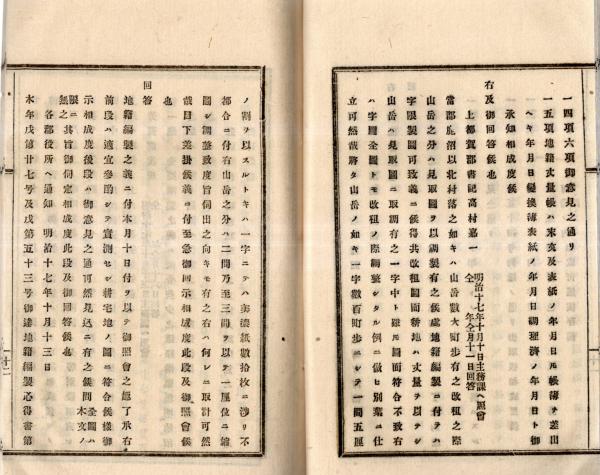 一四項六項御意見之通リ
一五項地籍丈量帳ハ末文及表紙ノ年月日ハ帳簿ヲ差出
ヘキ年月日變換簿表紙ノ年月日ハ調理濟ノ年月日ト御
承知相成度候
右及御回答候也
上都賀郡書記高村嘉一
明治十七年十月十日主務課ヘ照會
仝年仝月十一日回答
當郡鹿沼以北村落之如キハ山岳數大町歩有之改租之際
山岳之分ハ見取圖ヲ以調製有之候處地籍編製ニ付テハ
字限製圖可致義ニ候得共改租圖面耕地ハ丈量ヲ以テシ
山岳ハ見取圖ニ取調有之一字中ト雖ﾓ圖面符合不致右
ハ字圖全圖トモ改租ノ際調整シタル例ニ倣ヒ別葉ニ仕
立可然哉將タ山岳ノ如キ一字數百町歩ニシテ一間五厘
ノ割ヲ以スルトキハ一字ニテハ美濃紙數拾枚ニ渉リ不
都合ニ付右山岳之分ハ二間乃至三間ヲ以テ一厘位ニ縮
圖シ調整致度旨伺出之向キモ有之右ハ何レニ取計可然
哉目下差掛候義ニ付至急御回示相成度此段及御照會候
也
回答
地籍編製之義ニ付本月十日付ヲ以テ御照會之趣了承右
前段ハ適宜參酌シテ實測セシ耕宅地ノ圖ニ符合候樣御
示相成度後段ハ御意見之通可然見込ニ有之候間全圖ハ本文ノ
限ニ無之其旨御伺定相成度此段及御回答候也
各部役所ヘ通知 明治十七年十月十三日
本年戊第廿七号及戊第五十三号御達地籍編製心得書第
十二